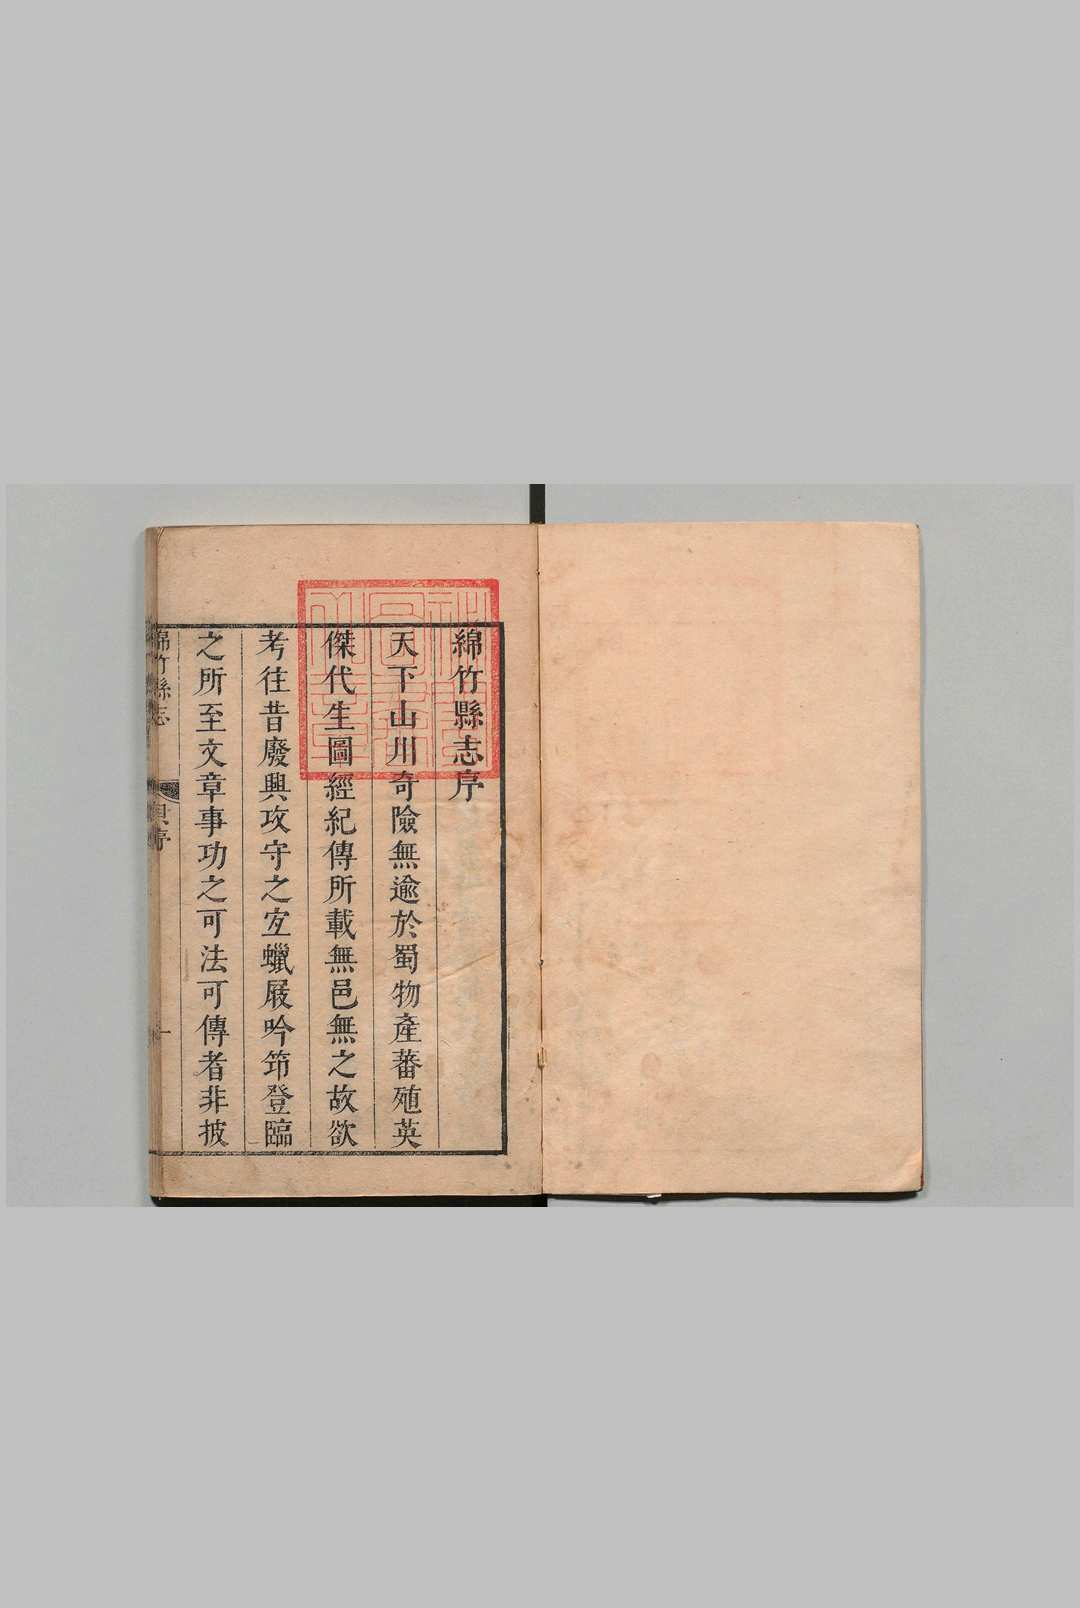 綿竹縣志序
天下山川奇險無逾於蜀物產蕃殖英
傑代生圖經紀傳所載無邑無之故欲
考往昔廢興攻守之宜蠟屐吟笻登臨
之所至文章事功之可法可傳者非披
綿竹縣志
序
一